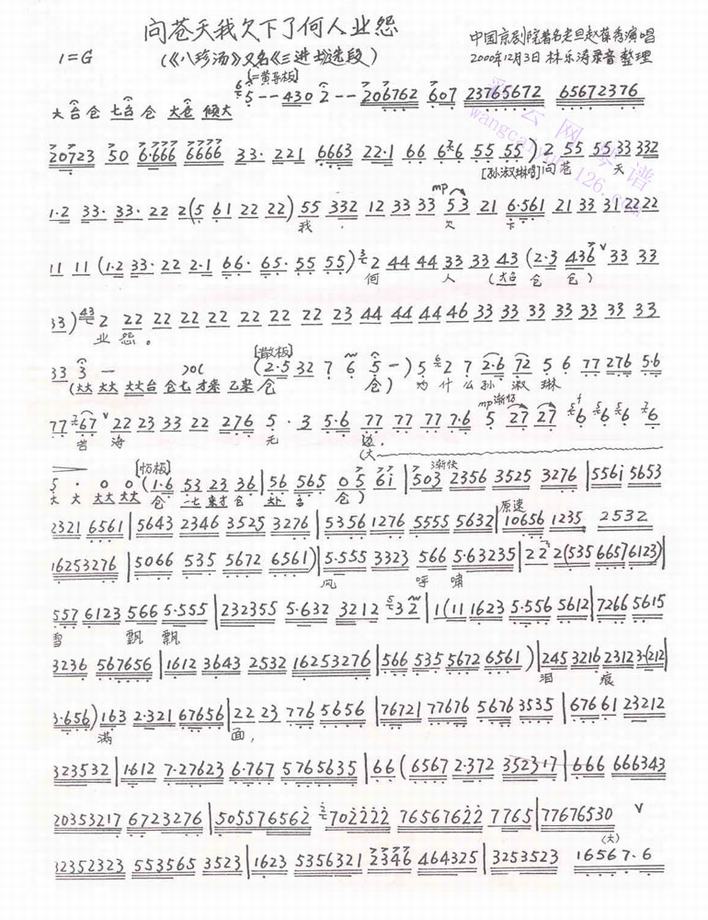 问苍天我欠下了何人业怨
(《八珍汤》又名《三进士选段)
中国京剧院著名老旦赵葆秀演唱
1=G
2000年12月3日 林乐涛录音 整理
[二黄导板]
5 - - - 430 2 - - 206762 607 23765672 65672376
大台仓 七台仓 大仓 倾大
wangcan 126.com
20723 50 6·666 6666 33· 221 6663 22·1 66 55 55) 2 55 55 33 332
[孙淑琳唱] 问苍 天
1·2 33· 33· 22 2(5 61 22 22) 55 332 12 33 33 53 21 6·561 21 33 31 22 22
mp
我, 欠 下
11 11 (1·2 33· 22 2·1 66· 65· 55 55) 2 44 44 33 33 43 (2·3 436 33 33
何 人 (大台 仓 仓)
33) 2 22 22 22 22 22 22 22 23 44 44 44 46 33 33 33 33 33 33 33
业 怨。
33 3 — [散板] (2·5 32 7 6 5 -) 5 2 7 2·6 72 5 6 77 276 5·6
(大大 大大 大大台 仓七 才来 乙来 仓 仓) 为 什 么孙 淑 琳
77 67 22 23 33 22 276 5 · 3 5·6 77 77 77 7·6 5 27 27 6 6 6 6
mp渐慢
苦 海 无 边
(大
5 · 0 0 [慢板] (1·6 53 23 36 | 56 565 0 5 61 | 503 2356 3525 3276 | 5561 5653
渐快
大 大 大大 大大 仓 七 仓 台 仓)
2321 6561 | 5643 2346 3525 3276 | 5356 1276 5555 5632 | 10656 1235 2532
原速
16253276 | 5066 535 5672 6561) | 5·555 3323 566 5·63235 | 2 2 2(535 6657 6123) |
风 呼 啸
557 6123 566 5·555 | 232355 5·632 3212 32 | 1(11 1623 5·556 5612 | 7266 5615
雪 飘 飘
3236 567656 | 1612 3643 2532 16253276 | 566 535 5672 6561) | 245 3216 23123 3·(212 |
泪 痕
3·656) 163 2·321 67656 | 22 23 776 5656 | 76721 77676 5676 3535 | 67661 23212
满 面,
323532 | 1612 7·27623 6·767 5765635 | 66 (6567 2·372 352317 | 666 666343
20353217 6723276 | 505576562 702222 76567622 7765 | 77676530
(大)
32352323 553565 3523 | 1623 5356321 2346 464325 | 3253523 16567·6